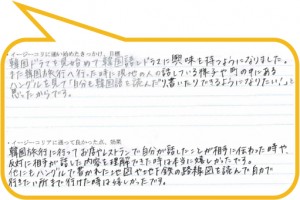 ・イージーコリアに通い始めたきっかけ、目標
韓国ドラマを見始めて韓国語とドラマに興味を持つようになりました。
また韓国旅行へ行った時に現地の人の話している様子や町の中にある
ハングルを見て「自分も韓国語を読んだり書いたりできるようになりたい！」と
思ったからです。
・イージーコリアに通って良かった点、効果
韓国旅行に行ってお店やレストランで自分が話したことが相手に伝わった時や、
反対に相手が話した内容を理解できた時は本当に嬉しかったです。
他にもハングルで書かれた地図や地下鉄の路線図を読んで自力で
行きたい所まで行けた時は嬉しかったです。